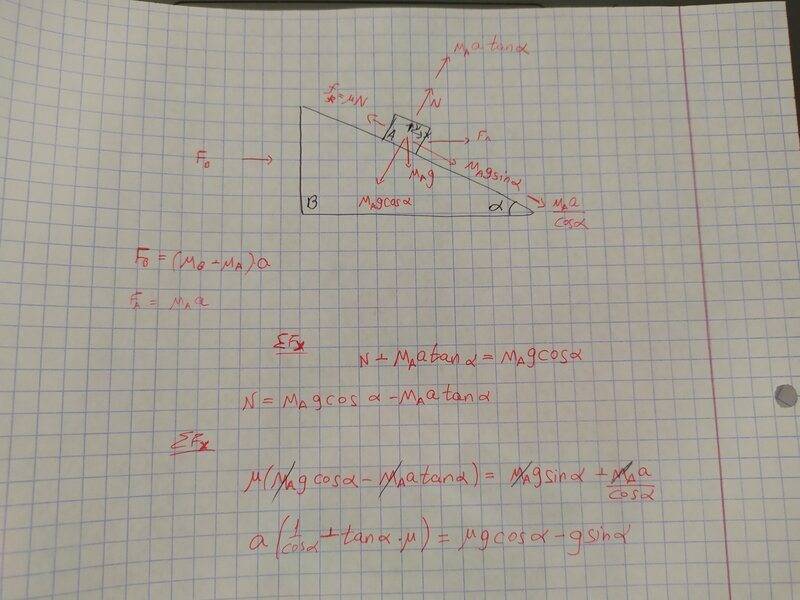 M_A a tanα
f = μN
N
A
F_A
F_B
M_A g
M_A g sinα
M_A g cosα
B
α
M_A a / cosα
F_B = (M_B - M_A) a
F_A = M_A a
ΣF_x
N + M_A a tanα = M_A g cosα
N = M_A g cos α - M_A a tanα
ΣF_x
μ(M_A g cosα - M_A a tanα) = M_A g sinα + M_A a / cosα
a (1/cosα + tanα·μ) = μg cosα - g sinα